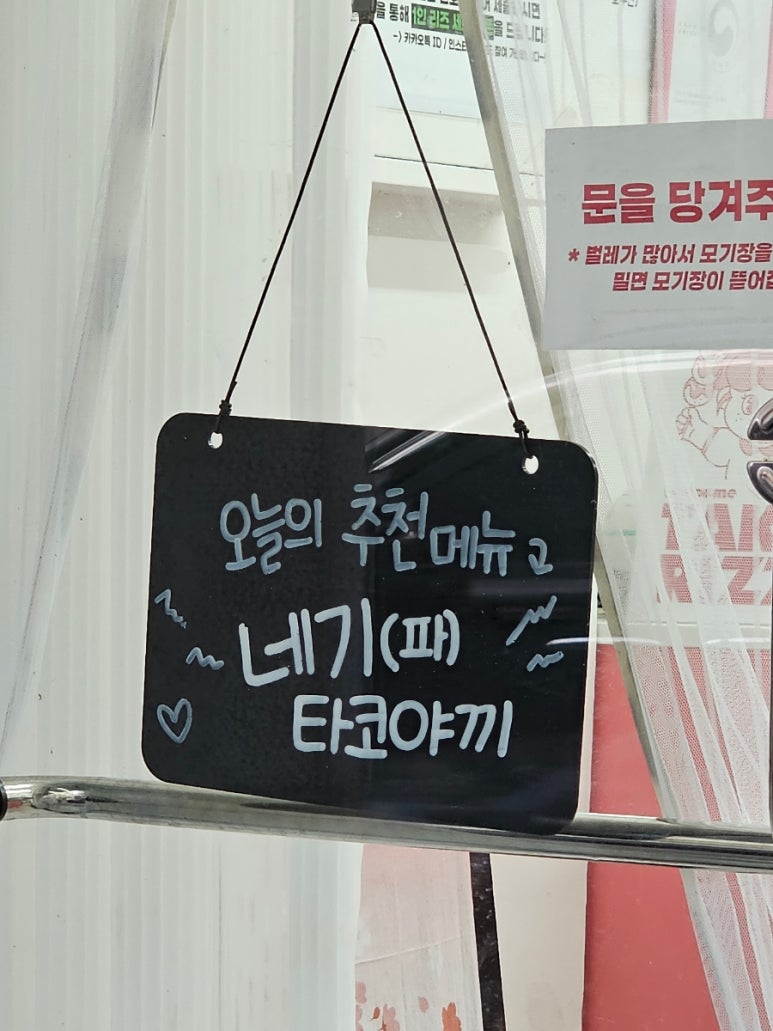 을 통해 1인 리즈
-> 카카오톡 ID / 인스타
문을 당겨주
* 벌레가 많아서 모기장을
밀면 모기장이 뜯어
오늘의 추천 메뉴 2
네기(파)
타코야끼